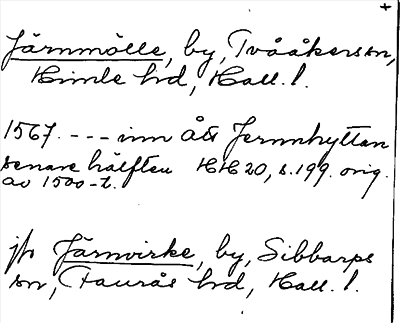 +
Järnmölle, by, Tvååkers sn,
Himle hd, Hall. l.
1567. --- inn ått Jernnhyttan
senare hälften HH 20, s. 199. orig.
av 1500-t.
jfr Järnvirke, by, Sibbarps
sn, Faurås hd, Hall. l.